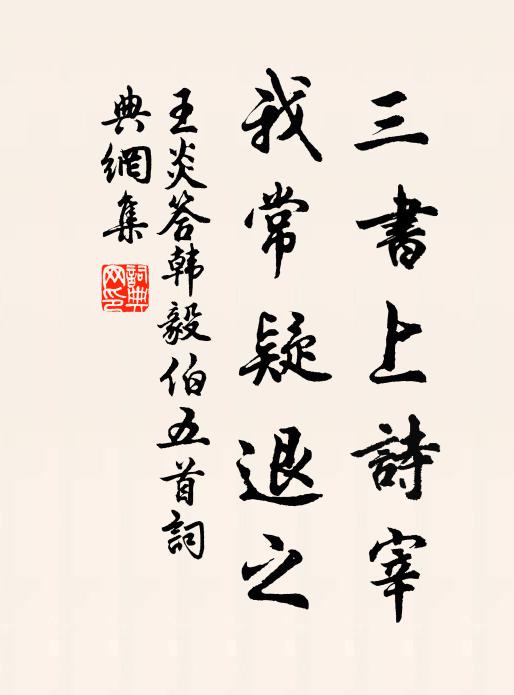 三書上詩宰
我常疑退之
王炎答韩毅伯五首詞
典網集
詞典網印